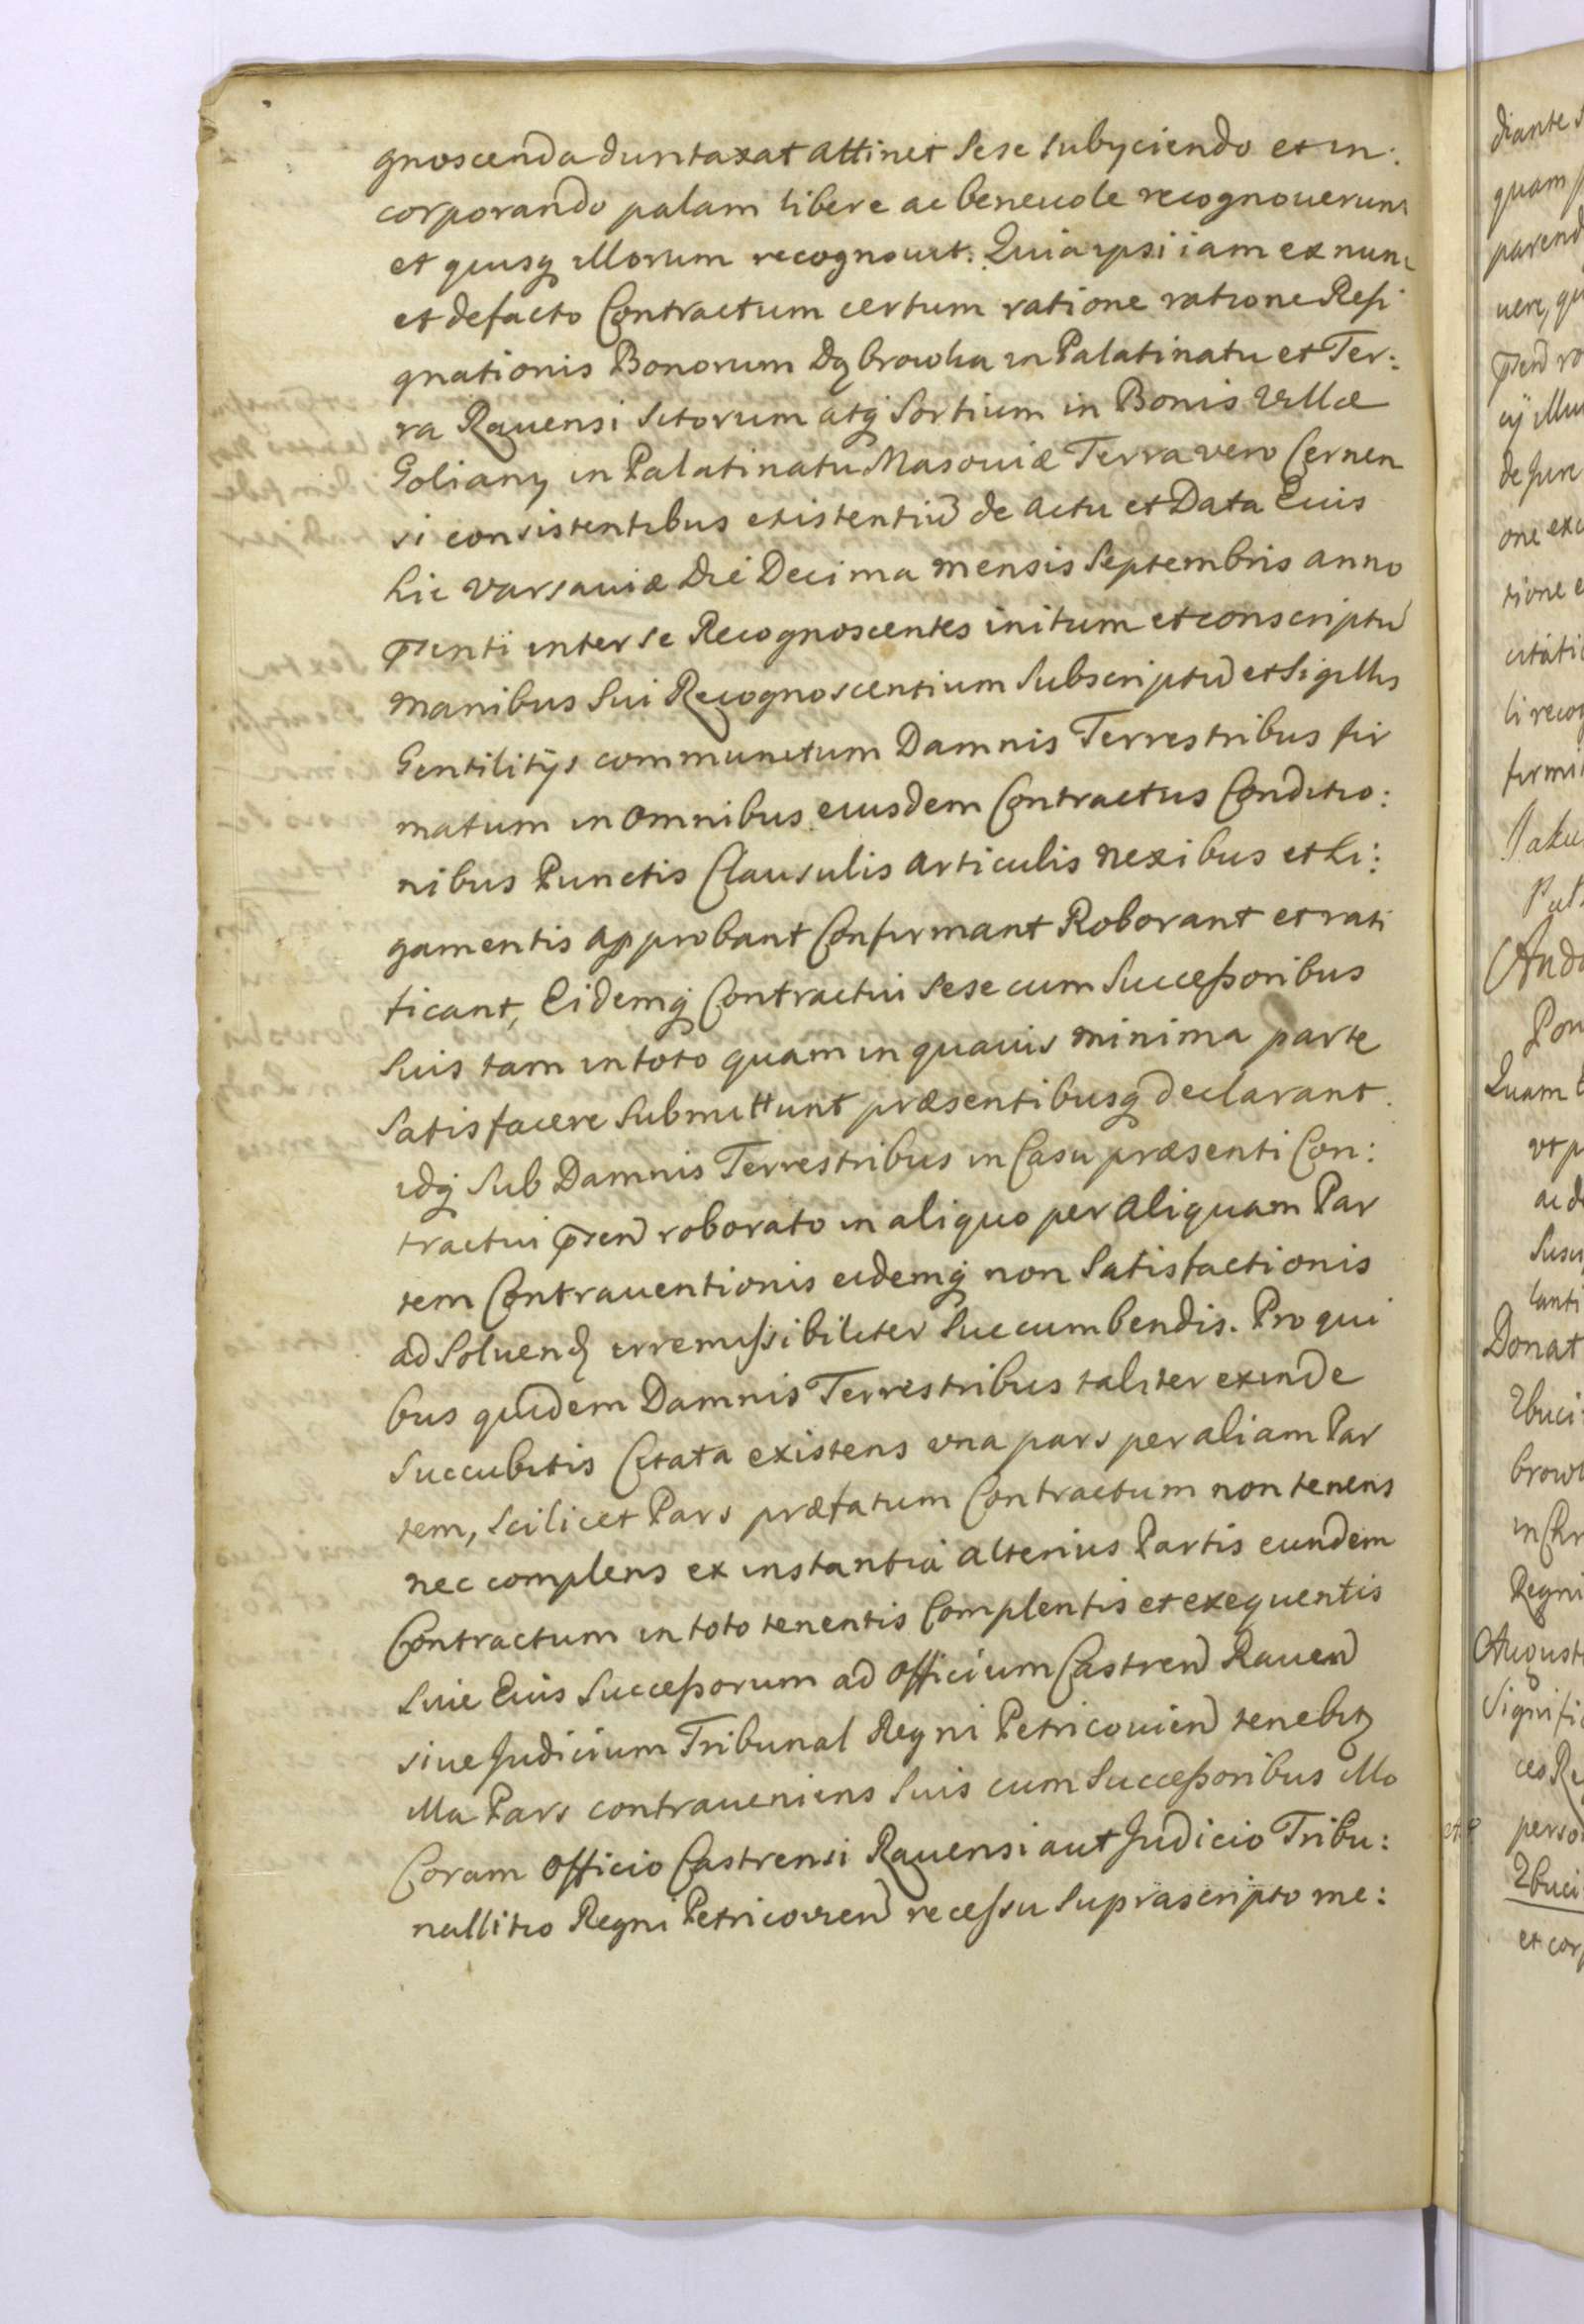 gnoscenda duntaxat attinet sese subyciendo et in:
corporando palam libere ac beneuole recognouerunt
et quisq illorum recognouit. Quia ipsi iam ex nunc
et defacto Contractum certum ratione ratione Resi
gnationis Bonorum Dąbrowka in Palatinatu et Ter:
ra Rauensi sitorum atq Sortium in Bonis Villæ
Goliany in Palatinatu Masouiæ Terra vero Cernen
si consistentibus existentiu de Actu et Data Eius
hic Varsauiæ Die Decima mensis Septembris anno
p̄senti inter se Recognoscentes initum et conscriptu
manibus Sui Recognoscentium Subscriptu et Sigillis
Gentilitijs communitum Damnis Terrestribus fir
matum in omnibus eiusdem Contractus Conditio:
nibus Punctis Clausulis Articulis nexibus et Li:
gamentis approbant Confirmant Roborant et rati
ficant, Eidemq Contractui sese cum Successoribus
Suis tam in toto quam in quauis minima parte
Satisfacere Submittunt præsentibusq declarant.
idq Sub Damnis Terrestribus in Casu præsenti Con:
tractui p̄sen roborato in aliquo per Aliquam Par
tem Contrauentionis eidemq non Satisfactionis
ad Soluend irremissibiliter Succumbendis. Pro qui
bus quidem Damnis Terrestribus taliter exinde
Succubitis Citata existens vna pars per aliam Par
tem, Scilicet Pars præfatum Contractum non tenens
nec complens ex instantia Alterius Partis eundem
Contractum in toto tenentis Complentis et exequentis
Siue Eius Successorum ad Officium Castren Rauen
siue Judicium Tribunal Regni Petricouien tenebit
illa Pars contraueniens Suis cum Successoribus illo
Coram Officio Castrensi Rauensi aut Judicio Tribu:
nallitio Regni Petricouien recessu Suprascripto me:
diante
quam
parend
uere,
p̄sen ro
de Jure
one exc
tione e
citatio
li recog
firmi
Jaku
Quam
vt p
ac d
Donat
brow
Regni
August
Signific
ces Re
perso
et corp